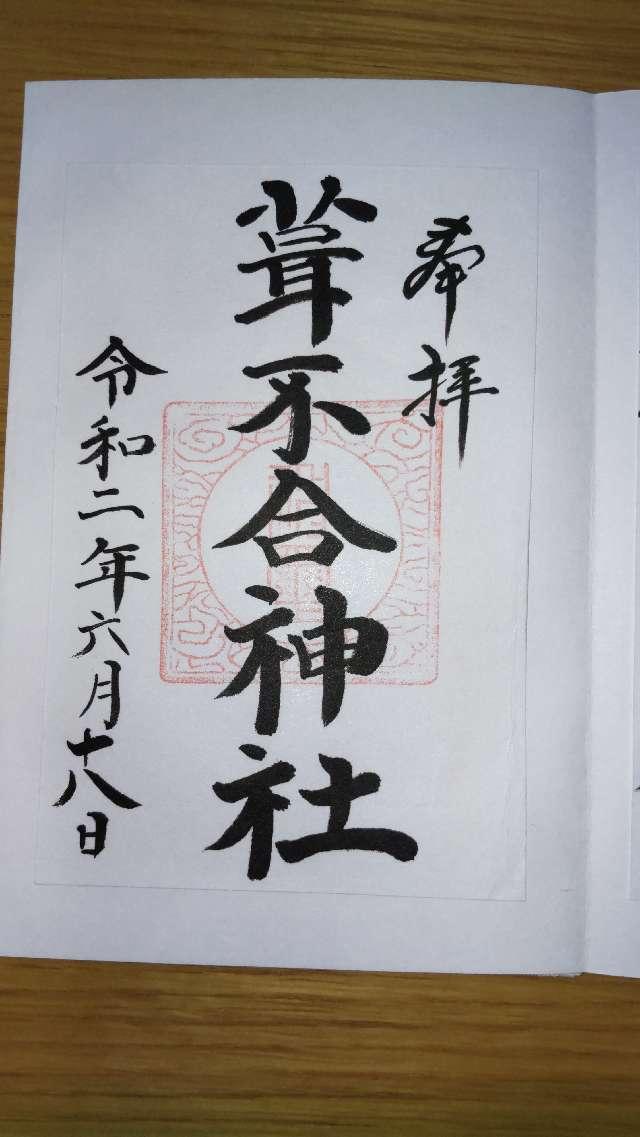 奉拝
葺不合神社
令和二年六月十八日